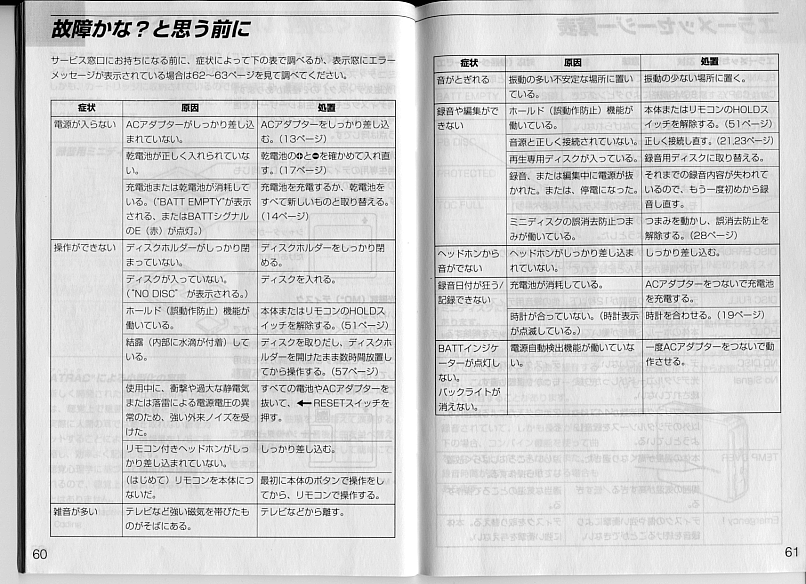 故障かな？と思う前に
サービス窓口にお持ちになる前に、症状によって下の表で調べるか、表示窓にエラー
メッセージが表示されている場合は62〜63ページを見て調べてください。
症状 原因 処置
電源が入らない ACアダプターがしっかり差し込 ACアダプターをしっかり差し込
まれていない。 む。（13ページ）
乾電池が正しく入れられていな 乾電池の⊕と⊖を確かめて入れ直
い。 す。（17ページ）
充電池または乾電池が消耗して 充電池を充電するか、乾電池を
いる。（“BATT EMPTY”が表示 すべて新しいものと取り替える。
される、またはBATTシグナル （14ページ）
のE（赤）が点灯。）
操作ができない ディスクホルダーがしっかり閉 ディスクホルダーをしっかり閉
まっていない。 める。
ディスクが入っていない。 ディスクを入れる。
（“NO DISC” が表示される。）
ホールド（誤動作防止）機能が 本体またはリモコンのHOLDス
働いている。 イッチを解除する。（51ページ）
結露（内部に水滴が付着）して ディスクを取りだし、ディスクホ
いる。 ルダーを開けたまま数時間放置し
てから操作する。（57ページ）
使用中に、衝撃や過大な静電気 すべての電池やACアダプターを
または落雷による電源電圧の異 抜いて、←RESETスイッチを
常のため、強い外来ノイズを受 押す。
けた。
リモコン付きヘッドホンがしっ しっかり差し込む。
かり差し込まれていない。
（はじめて）リモコンを本体につ 最初に本体のボタンで操作をし
ないだ。 てから、リモコンで操作する。
雑音が多い テレビなど強い磁気を帯びたも テレビなどから離す。
のがそばにある。
60
症状 原因 処置
音がとぎれる 振動の多い不安定な場所に置い 振動の少ない場所に置く。
ている。
録音や編集がで ホールド（誤動作防止）機能が 本体またはリモコンのHOLDス
きない 働いている。 イッチを解除する。（51ページ）
音源と正しく接続されていない。 正しく接続し直す。（21,23ページ）
再生専用ディスクが入っている。 録音用ディスクに取り替える。
録音、または編集中に電源が抜 それまでの録音内容が失われて
かれた。または、停電になった。 いるので、もう一度初めから録
音し直す。
ミニディスクの誤消去防止つま つまみを動かし、誤消去防止を
みが働いている。 解除する。（28ページ）
ヘッドホンから ヘッドホンがしっかり差し込ま しっかり差し込む。
音がでない れていない。
録音日付が狂う/ 充電池が消耗している。 ACアダプターをつないで充電池
記録できない を充電する。
時計が合っていない。（時計表示 時計を合わせる。（19ページ）
が点滅している。）
BATTインジケ 電源自動検出機能が働いていな 一度ACアダプターをつないで動
ーターが点灯し い。 作させる。
ない。
バックライトが
消えない。
61